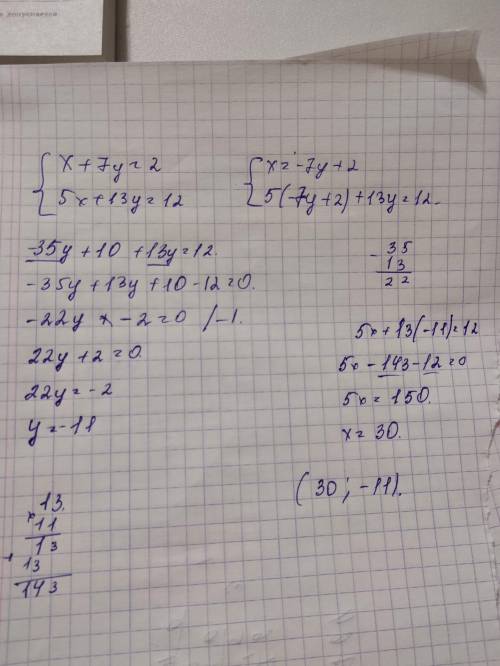 x+7y=2
5x+13y=12
x=-7y+2
5(-7y+2)+13y=12.
-35y+10+13y=12.
-35y+13y+10-12=0.
-22y x -2=0 /-1.
22y+2=0.
22y=-2
y=-11
-35
13
22
5x+13(-11)=12
5x-143-12=0
5x=150.
x=30.
(30; -11).
x13.
11
13
+13
143